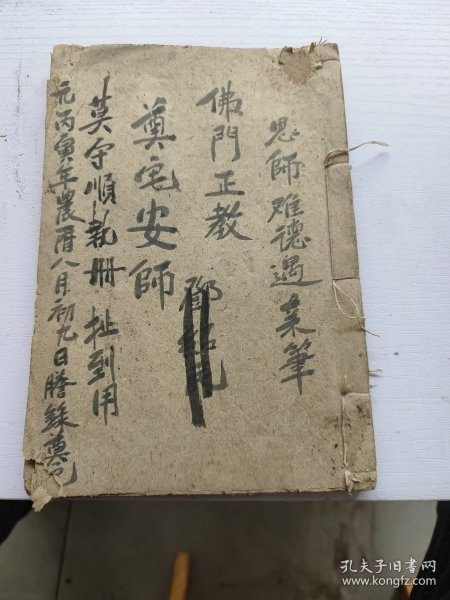 恩師难德過菜筆
佛門正教
鄧
奠宅安師
莫字順執册 扯到用
元丙寅年農曆八月初九日謄錄奠完
孔夫子旧书网
www.kongfz.com